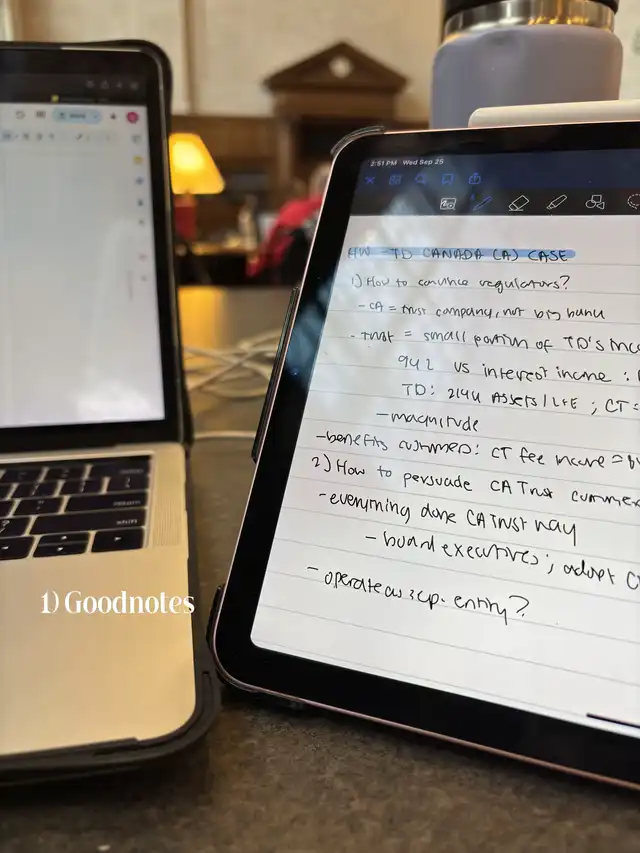 2:51 PM Wed Sep 25
HW - TD CANADA (A) CASE
1) How to convince regulators?
- CA = trust company, not big bank
- Trust = small portion of TD's inc
942 vs interest income :
TD: 214U ASSETS / LFE ; CT =
- magnitude
- benefits customers: CT fee income =
2) How to persuade CA Trust
- everything done CA Trust way
- board executives; adopt C
- operate as sep. entity?
return
shift
1) Goodnotes